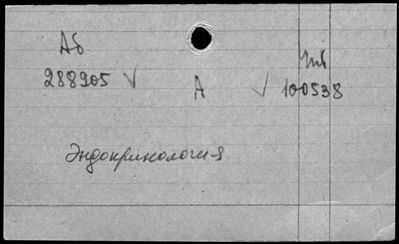 Аб
288905 V
А
V 100538
Эндокринология